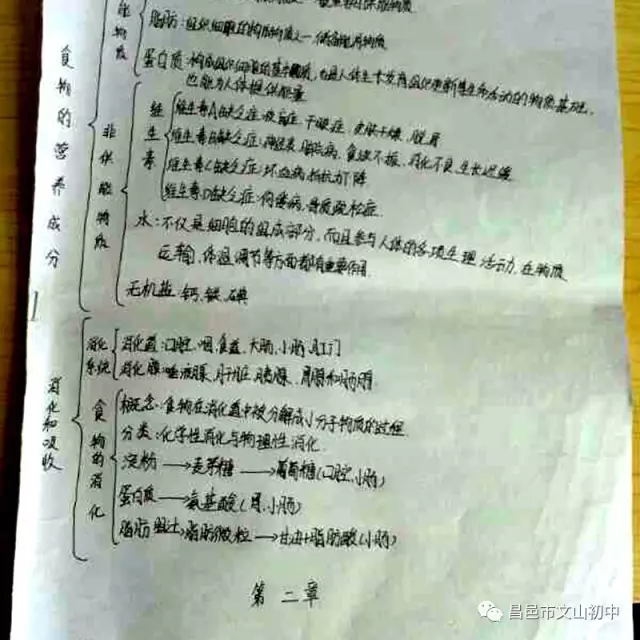 食物的营养成分
能物质
脂肪:组织细胞的构成物质,一储备能源物质
蛋白质:构成组织细胞的基本物质,也是人体生长发育组织更新等生命活动的物质基础,
也能为人体提供能量
非供能物质
维生素
维生素A缺乏症:夜盲症、干眼症、皮肤干燥、脱屑
维生素B缺乏症:神经炎、脚气病、食欲不振、消化不良、生长迟缓
维生素C缺乏症:坏血病、抵抗力下降
维生素D缺乏症:佝偻病、骨质疏松症
水:不仅是细胞的组成部分,而且参与人体的各项生理活动,在物质
运输、体温调节等方面都有重要作用
无机盐:钙、铁、碘
消化和吸收
消化系统
消化道:口腔、咽、食道、大肠、小肠、肛门
消化腺:唾液腺、肝脏、胰腺、胃腺和肠腺
食物的消化
概念:食物在消化道中被分解成小分子物质的过程
分类:化学性消化与物理性消化
淀粉→麦芽糖→葡萄糖(口腔、小肠)
蛋白质→氨基酸(胃、小肠)
脂肪 胆汁→脂肪微粒→甘油+脂肪酸(小肠)
第二章
昌邑市文山初中